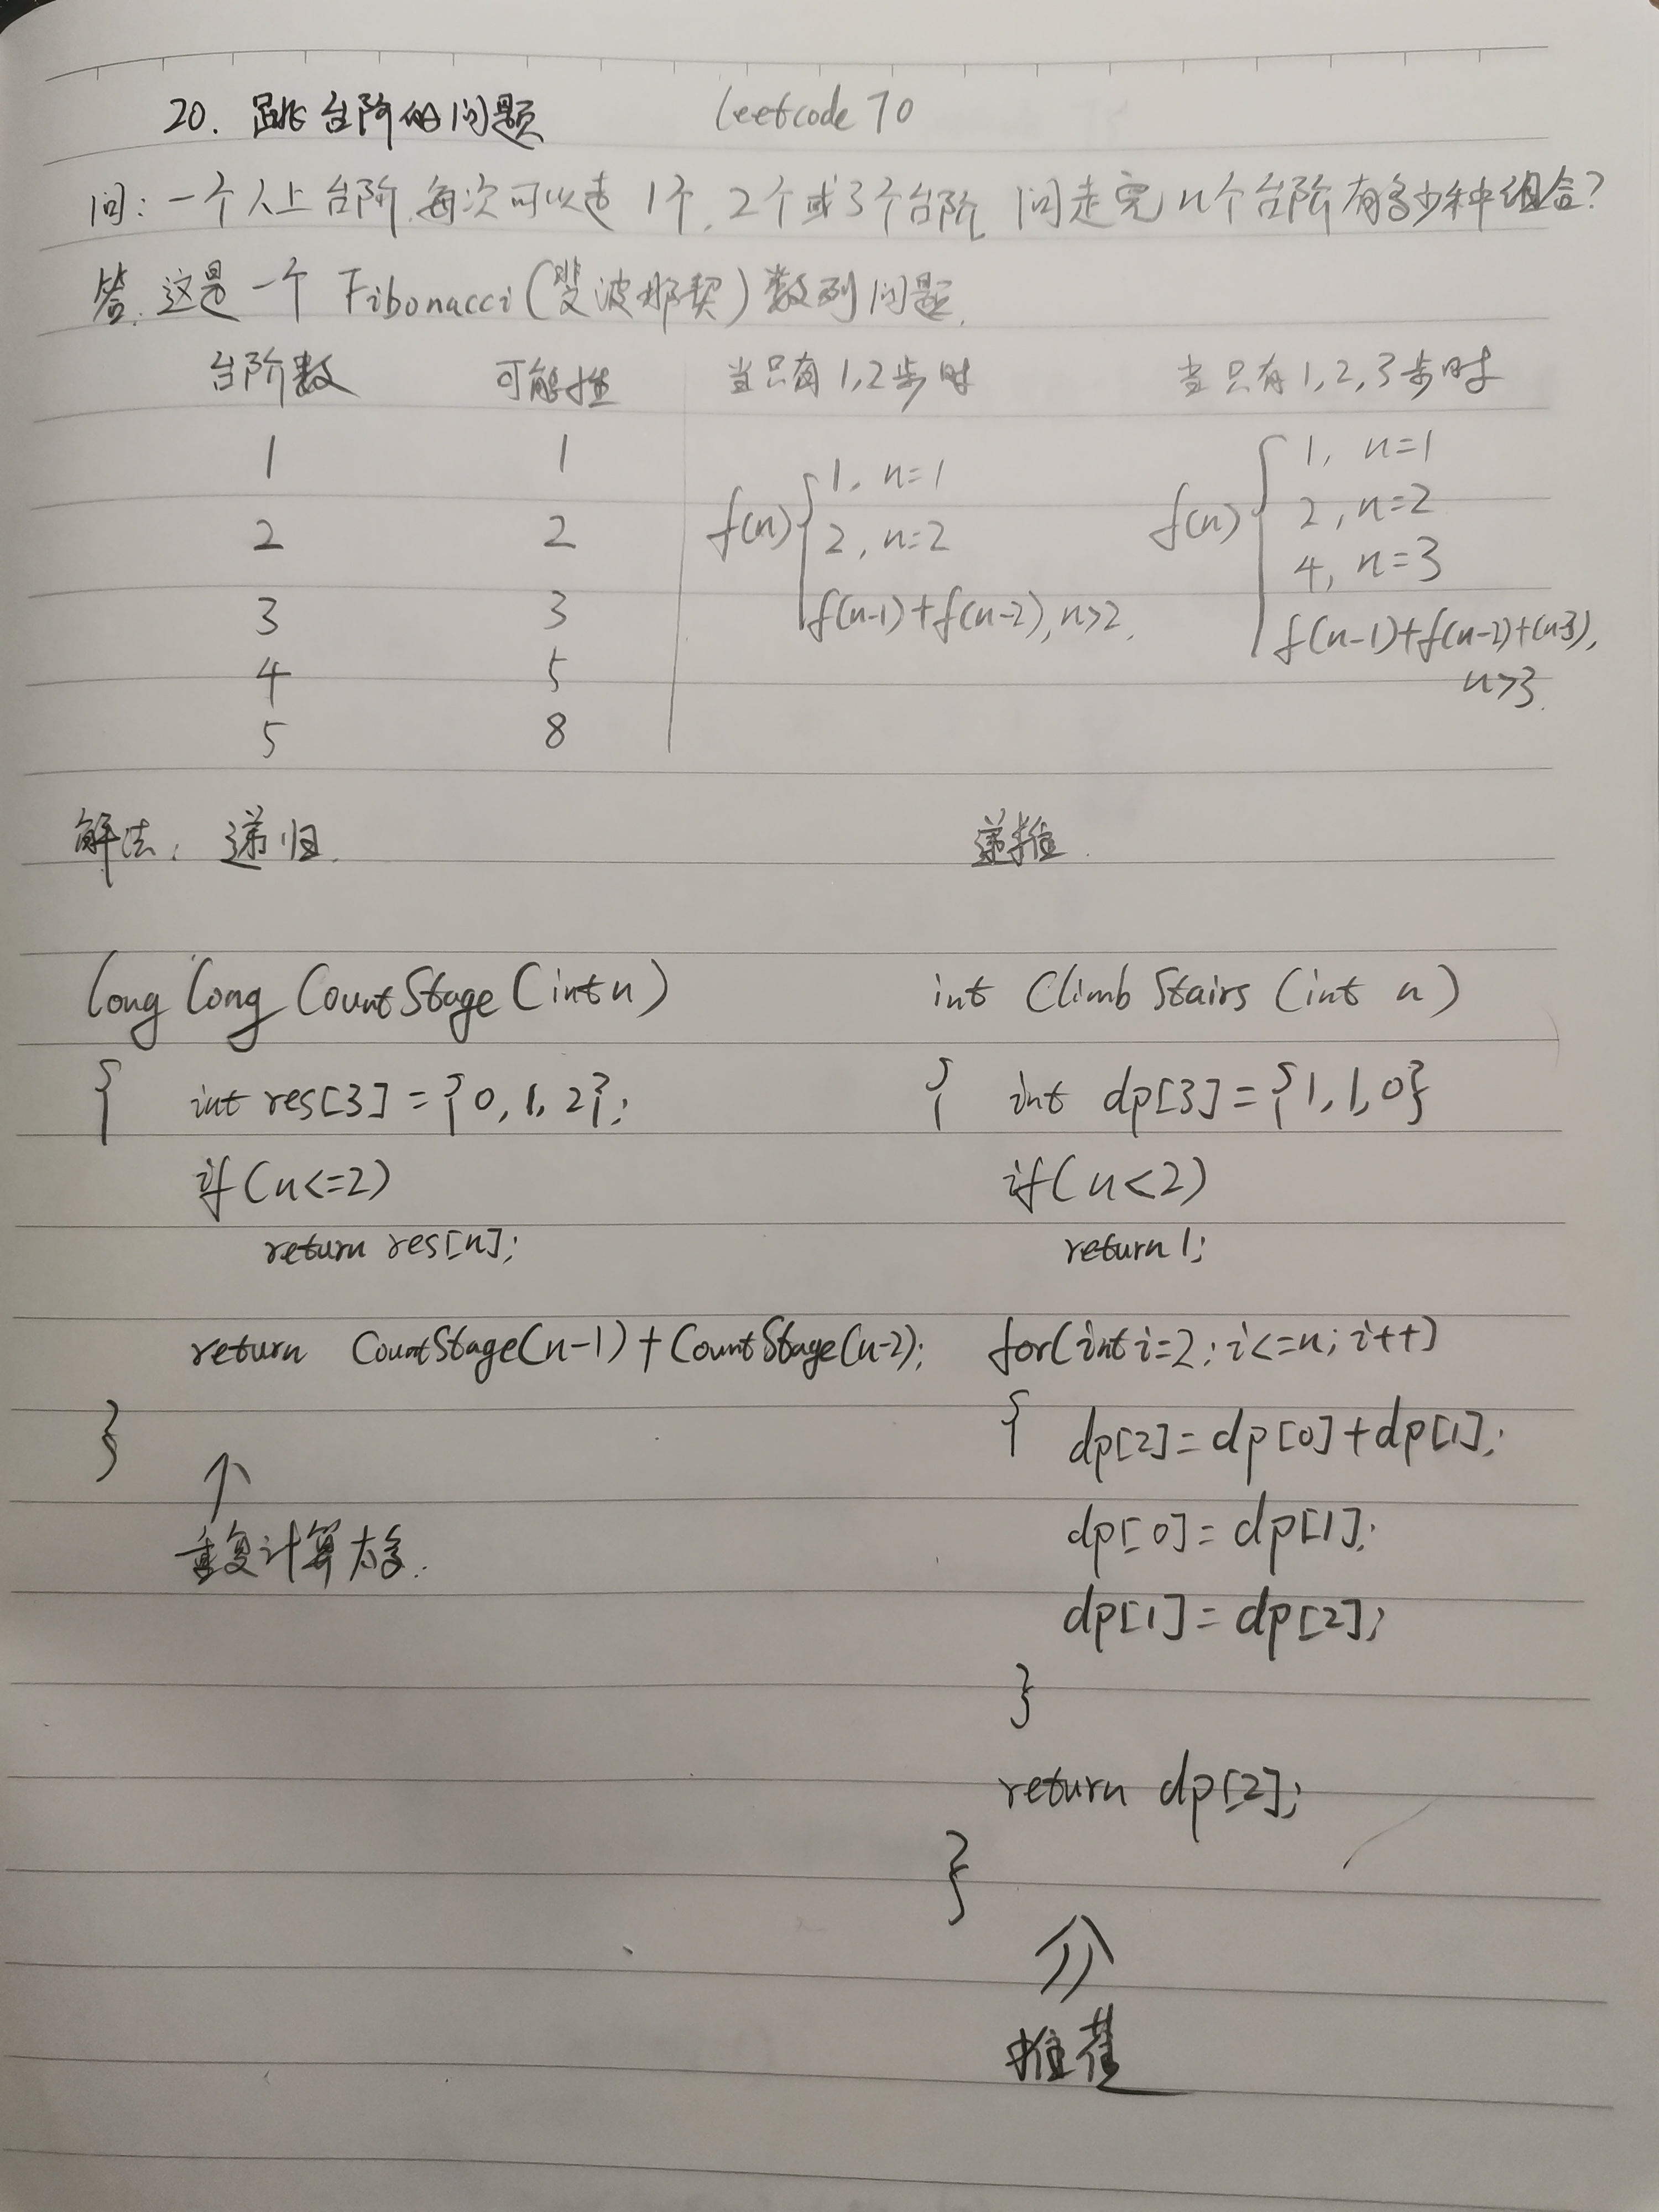 20. 跳台阶的问题 Leetcode 70
问:一个人上台阶,每次可以走1个,2个或3个台阶,问走完n个台阶有多少种组合?
答:这是一个Fibonacci(斐波那契)数列问题.
台阶数 可能性 当只有1,2步时 当只有1,2,3步时
1 1
2 2
3 3
4 5
5 8
f(n) { 1, n=1
2, n=2
f(n-1)+f(n-2), n>2.
f(n) { 1, n=1
2, n=2
4, n=3
f(n-1)+f(n-2)+(n-3),
n>3.
解法: 递归.
long long CountStage(int n)
{ int res[3]={0,1,2};
if(n<=2)
return res[n];
return CountStage(n-1)+CountStage(n-2);
}
↑
重复计算太多.
递推.
int ClimbStairs(int n)
{ int dp[3]={1,1,0}
if(n<2)
return 1;
for(int i=2;i<=n;i++)
{ dp[2]=dp[0]+dp[1];
dp[0]=dp[1];
dp[1]=dp[2];
}
return dp[2];
}
⇑
推荐